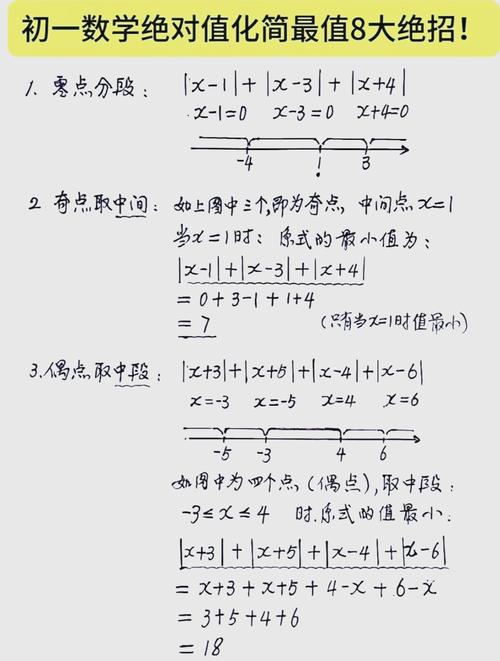 初一数学绝对值化简最值8大绝招！
1. 零点分段： |x-1|+|x-3|+|x+4|
x-1=0 x-3=0 x+4=0
-4 1 3
2 奇点取中间：如上图中三个,即为奇点, 中间点x=1
当x=1时：原式的最小值为：
|x-1|+|x-3|+|x+4|
=0+3-1+1+4
=7 (只有当x=1时值最小)
3.偶点取中段： |x+3|+|x+5|+|x-4|+|x-6|
x=-3 x=-5 x=4 x=6
-5 -3 4 6
如图中为四个点(偶点),取中段：
-3≤x≤4 时.原式的值最小：
|x+3|+|x+5|+|x-4|+|x-6|
=x+3+x+5+4-x+6-x
=3+5+4+6
=18